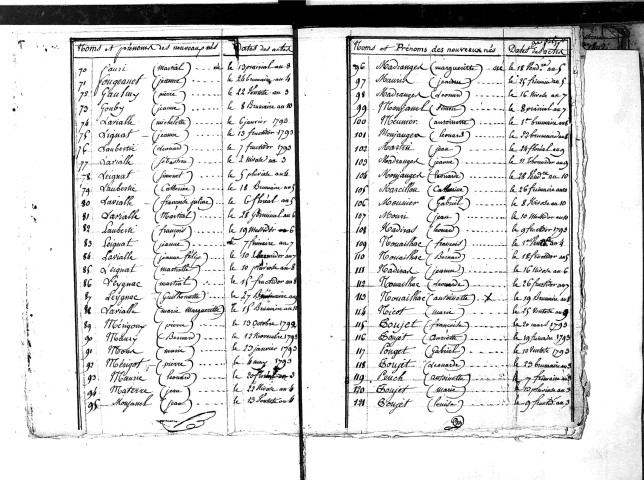 Noms et prénoms des nouveaux nés Dates des actes
70 Fauri (martial) le 13 prairial an 8
71 Fougeanet (jeanne) le 26 brumaire an 4
72 Gautmy (pierre) le 22 Nivôse an 3
73 Gouby (jeanne) le 8 Brumaire an 10
74 Lavialle (michelette) le 6 janvier 1793
75 Lignat (jeanne) le 13 fructidor 1793
76 Laubertie (léonard) le 7 fructidor 1793
77 Lavialle (sébastien) le 2 Nivôse an 3
78 Leignat (jeanne) le 5 pluviôse an
79 Laubertie (Catherine) le 18 Brumaire an 5
80 Lavialle (françoise julie) le 6 floréal an 5
81 Lavialle (Martial) le 28 Germinal an 6
82 Lauberte (françois) le 19 Messidor an 6
83 Leignat (jeanne) le 7 frimaire an 7
84 Lavialle (jeanne félix) le 10 an 7
85 Lignat (martiale) le 10 pluviôse an 8
86 Leygnac (martial) le 15 fructidor an 8
87 Leygnac le 27 Brumaire an 9
88 Lavialle (marie Marguerite) le 15 Brumaire an
89 Mérigou (pierre) le 13 Octobre 1792
90 Maury (Bernard) le 12 Novembre 1792
91 (marie) le 23 janvier 1793
92 Mérigot (pierre) le 4 may 1793
93 Maurie (léonard) le 20 an 3
94 Materre (jean) le 22 Nivôse an 4
95 Monfanel (jean) le 13 Ventôse an 4
Noms et Prénoms des nouveaux nés Dates des actes
96 Madranges (marguerite) le 18 Vend.re an 5
97 Maurie le 25 frimaire an 5
98 Madranges (léonard) le 16 Nivôse an 7
99 Monfanel le 8 prairial an 7
100 Meunier (antoinette) le 1er brumaire an 8
101 Monjauger (léonard) le 23 brumaire an 8
102 Martin (jean) le 28 floréal an 9
103 Madranges (jeanne) le 11 an 9
104 Monjauges (léonarde) le 28 Vend.re an 10
105 Marcillou (Catherine) le 26 frimaire an 10
106 Mounier (Gabriel) le 8 Nivôse an 10
107 Mouri (jean) le 10 Messidor an 10
108 Nadiras (léonard) le 9 fructidor 1793
109 Nouailhac (françois) le 1er an 4
110 Nouailhac (Bernard) le 18 fructidor an 5
111 Nadiras (jeanne) le 16 Nivôse an 6
112 Nouailhac (léonarde) le 26 fructidor an 7
113 Nouailhac (antoinette) x le 19 Brumaire an 8
114 Nicot (marie) le 25 Ventôse an 9
115 Poujet (françoise) le 20 mars 1793
116 Poujet le 19 1793
117 Ponget (gabriel) le 10 1793
118 Poujet (léonarde) le 23 brumaire an
119 Puech (antoinette) le 7 frimaire an
120 Poujet (marie) le 13 pluviôse an 3
121 Poujet (louise) le 9 fructid. an 3